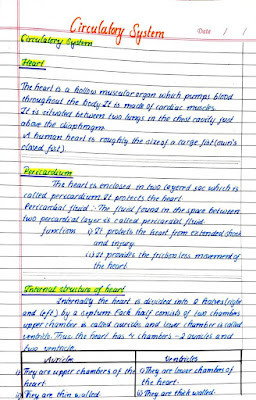 Circulatory System
Date / /
Circulatory System
Heart
The heart is a hollow muscular organ which pumps blood
throughout the body. It is made of cardiac muscles.
It is situated between two lungs in the chest cavity just
above the diaphragm.
A human heart is roughly the size of a large fist (own's
closed fist)
Pericardium
The heart is enclosed in two layered sac which is
called pericardium. It protects the heart.
Pericardial fluid :- The fluid found in the space between
two pericardial layer is called pericardial fluid.
function i) It protects the heart from extended shock
and injury
ii) It provides the frictionless movement of
the heart.
Internal structure of heart
Internally the heart is divided into 2 halves (right
and left) by a septum. Each half consists of two chambers
upper chamber is called auricles and lower chamber is called
ventricle. Thus the heart has 4 chambers - 2 auricles and
two ventricle.
Auricles Ventricles
i) They are upper chambers of the heart. i) They are lower chambers of the heart.
ii) They are thin walled. ii) They are thick walled.